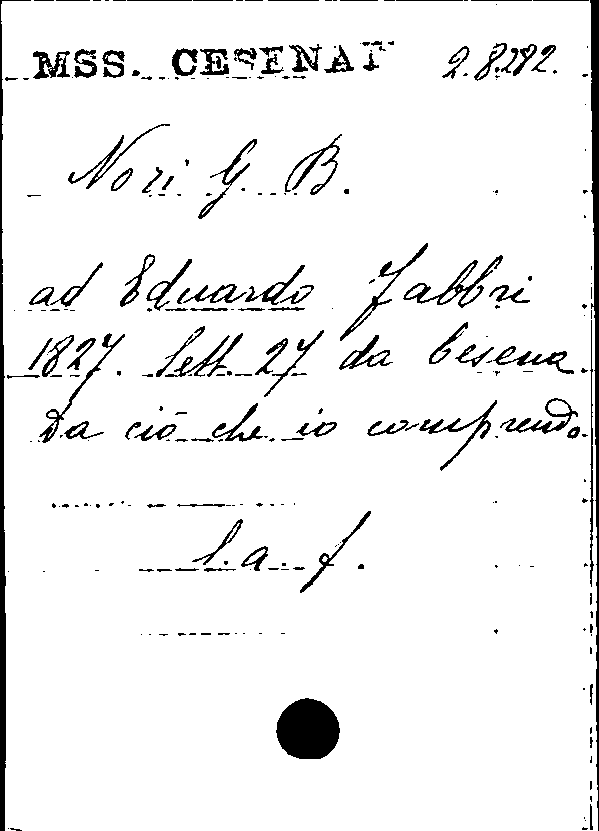 MSS. CESENAT 2.8.282.
Nori G. B.
ad Eduardo Fabbri
1827. Sett. 27 da Cesena
Da ciò che io comprendo
l. a. f.